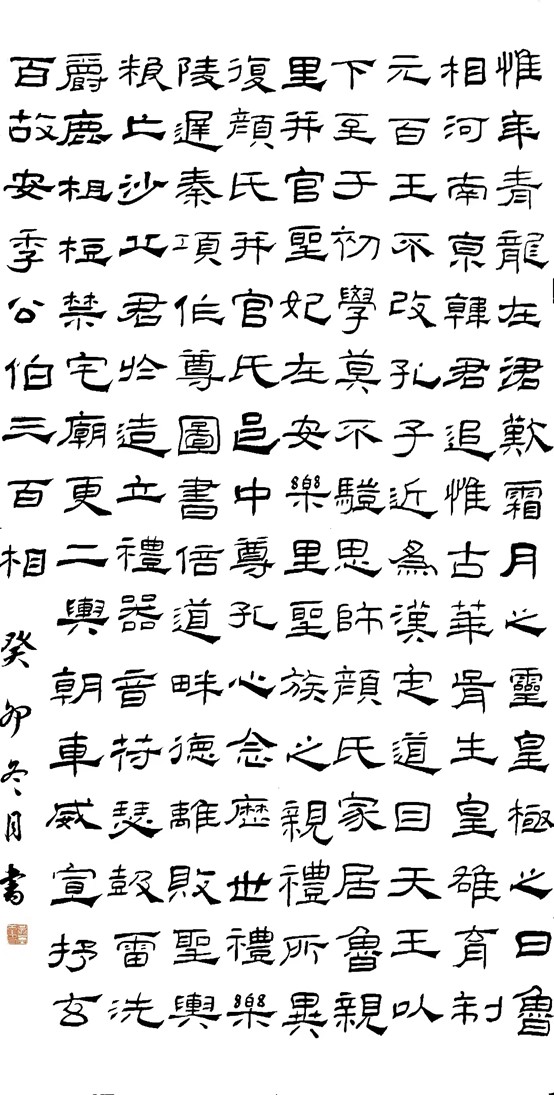 惟年青龍在涒歎霜月之靈皇極之日魯
相河南京韓君追惟古華胥生皇雄育制
元百王不改孔子近爲漢定道曰天王以
下至于初學莫不𩥉思師顏氏家居魯親
里并官聖妃在安樂里聖族之親禮所異
復顏氏并官氏邑中尊孔心念歷世禮樂
陵遲秦項作尊圖書倍道畔德離敗聖輿
粮亡沙丘君於造立禮器音苻瑟鼓雷洗
爵鹿柤梪禁宅廟更二輿朝車威宣抒玄
百故安季公伯三百相
癸卯冬月書